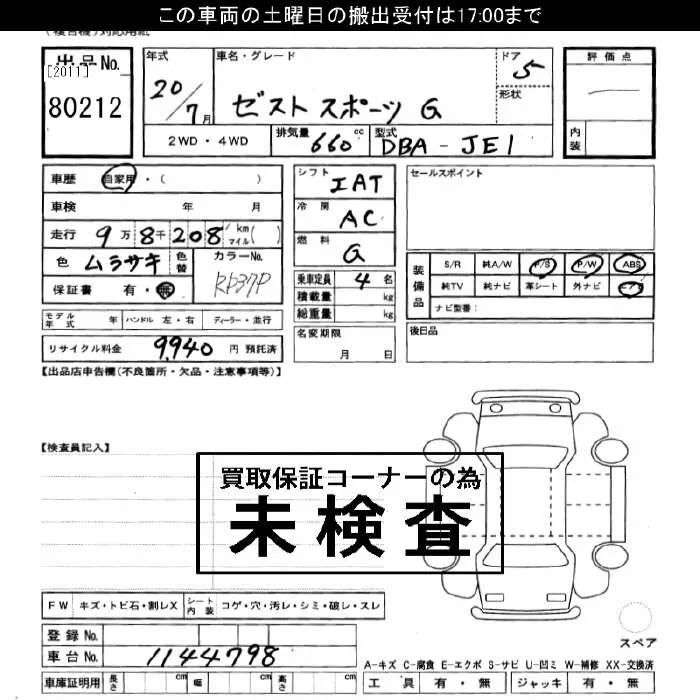 この車両の土曜日の搬出受付は17:00まで
出品No.
[2011]
80212
年式
20/7月
車名・グレード
ゼスト スポーツ G
ドア
5
形状
評価点
内装
2WD・4WD
排気量 660 cc
型式 DBA-JE1
車歴 自家用・( )
車検 年 月
走行 9万8千208 km マイル( )
色 ムラサキ 色替
カラーNo.
RP37P
保証書 有・無
シフト IAT
冷房 AC
燃料 G
乗車定員 4 名
積載量 kg
総重量 kg
セールスポイント
装備品
S/R 純A/W P/S P/W ABS
純TV 純ナビ 革シート 外ナビ エアB
ナビ型番:
モデル年式 年 ハンドル 左・右 ディーラー・並行
名変期限
月 日
後日品
リサイクル料金 9,940 円 預託済
【出品店申告欄(不良箇所・欠品・注意事項等)】
【検査員記入】
買取保証コーナーの為
未検査
FW キズ・トビ石・割レX シート内装 コゲ・穴・汚レ・シミ・破レ・スレ
登録No.
車台No. 1144798
車庫証明用 長さ cm 幅 cm 高さ cm
スペア
A-キズ C-腐食 E-エクボ S-サビ U-凹ミ W-補修 XX-交換済
工具 有・無 ジャッキ 有・無